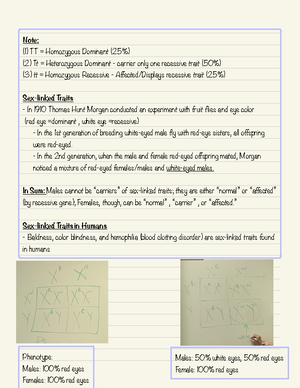 Note:
(1) TT = Homozygous Dominant (25%)
(2) Tt = Heterozygous Dominant - carrier only one recessive trait (50%)
(3) tt = Homozygous Recessive - Affected/Displays recessive trait (25%)
Sex-linked Traits
- In 1910 Thomas Hunt Morgan conducted an experiment with fruit flies and eye color
(red eye =dominant , white eye =recessive)
- In the 1st generation of breeding white-eyed male fly with red-eye sisters, all offspring
were red-eyed.
- In the 2nd generation, when the male and female red-eyed offspring mated, Morgan
noticed a mixture of red-eyed females/males and white-eyed males.
In Sum: Males cannot be "carriers" of sex-linked traits; they are either "normal" or "affected"
(by recessive gene); Females, though, can be "normal" , "carrier" , or "affected."
Sex-linked Traits in Humans
- Baldness, color blindness, and hemophilia (blood clotting disorder) are sex-linked traits found
in humans
Phenotype:
Males: 100% red eyes
Females: 100% red eyes
Males: 50% white eyes, 50% red eyes
Female: 100% red eyes